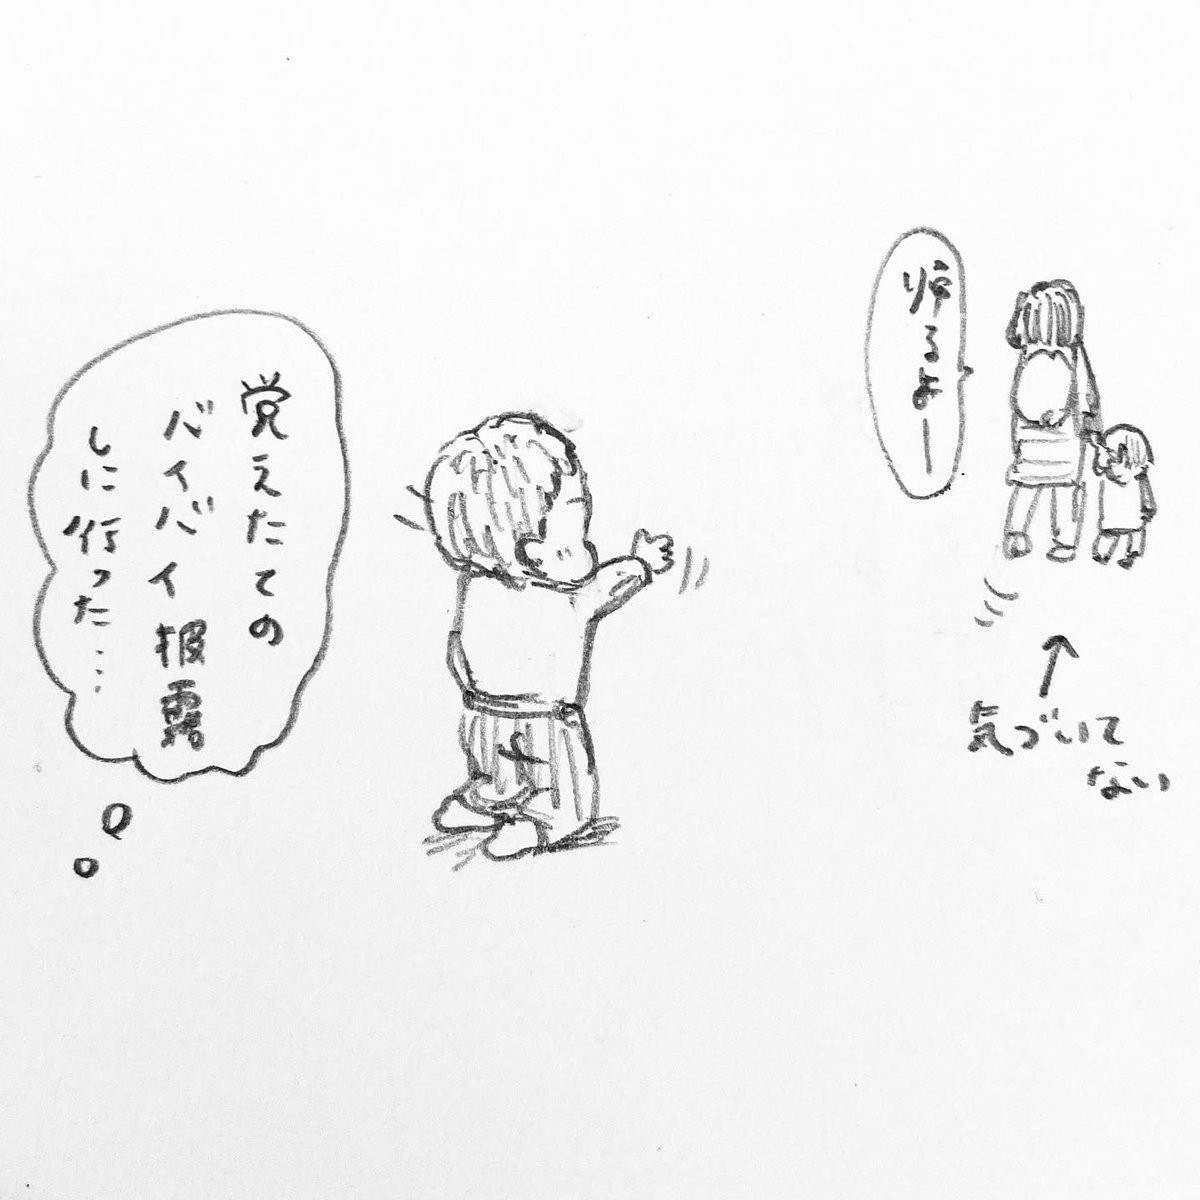 帰るよー
気づいて
ない
覚えたての
バイバイ披露
しに行った…